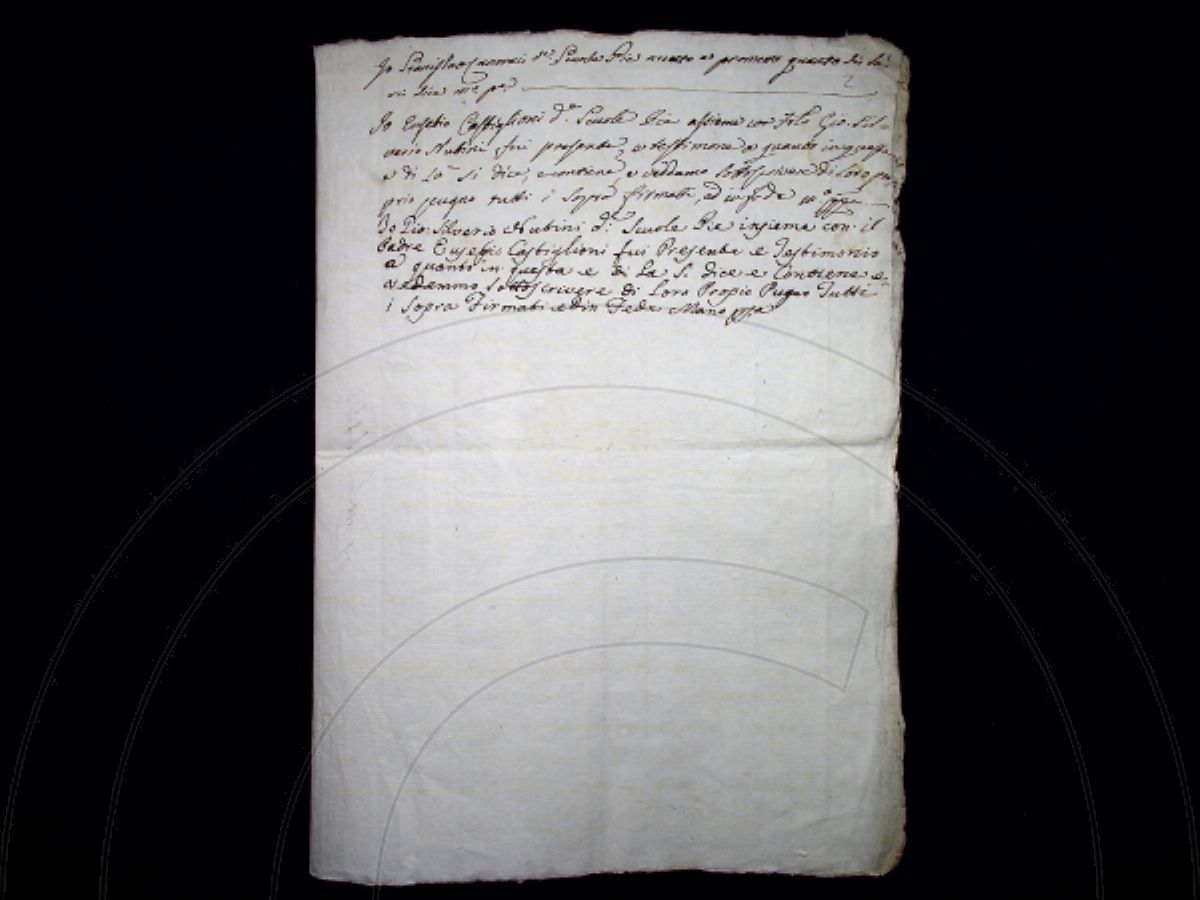 Io Stanislao Canonici d.e Scuole Pie accetto e prometto quanto di
si dice m.o p.a
2
Io Eusebio Castiglioni d.e Scuole Pie assieme con Gio. Sil-
verio Nubini fui presente, e testimone a quanto in questa
e di là si dice, e contiene, e veddamo sottoscrivere di Loro pro
prio pugno tutti i sopra firmati, ed in fede m.o ppa
Io Gio: Silverio Nubini d.e Scuole Pie insieme con il
Padre Eusebio Castiglioni fui Presente e Testimonio
a quanto in questa e di La S. dice e Contiene e
vedemmo Sottoscrivere di Loro Propio Pugno Tutti
i Sopra Firmati ed in Fede Mano ppa